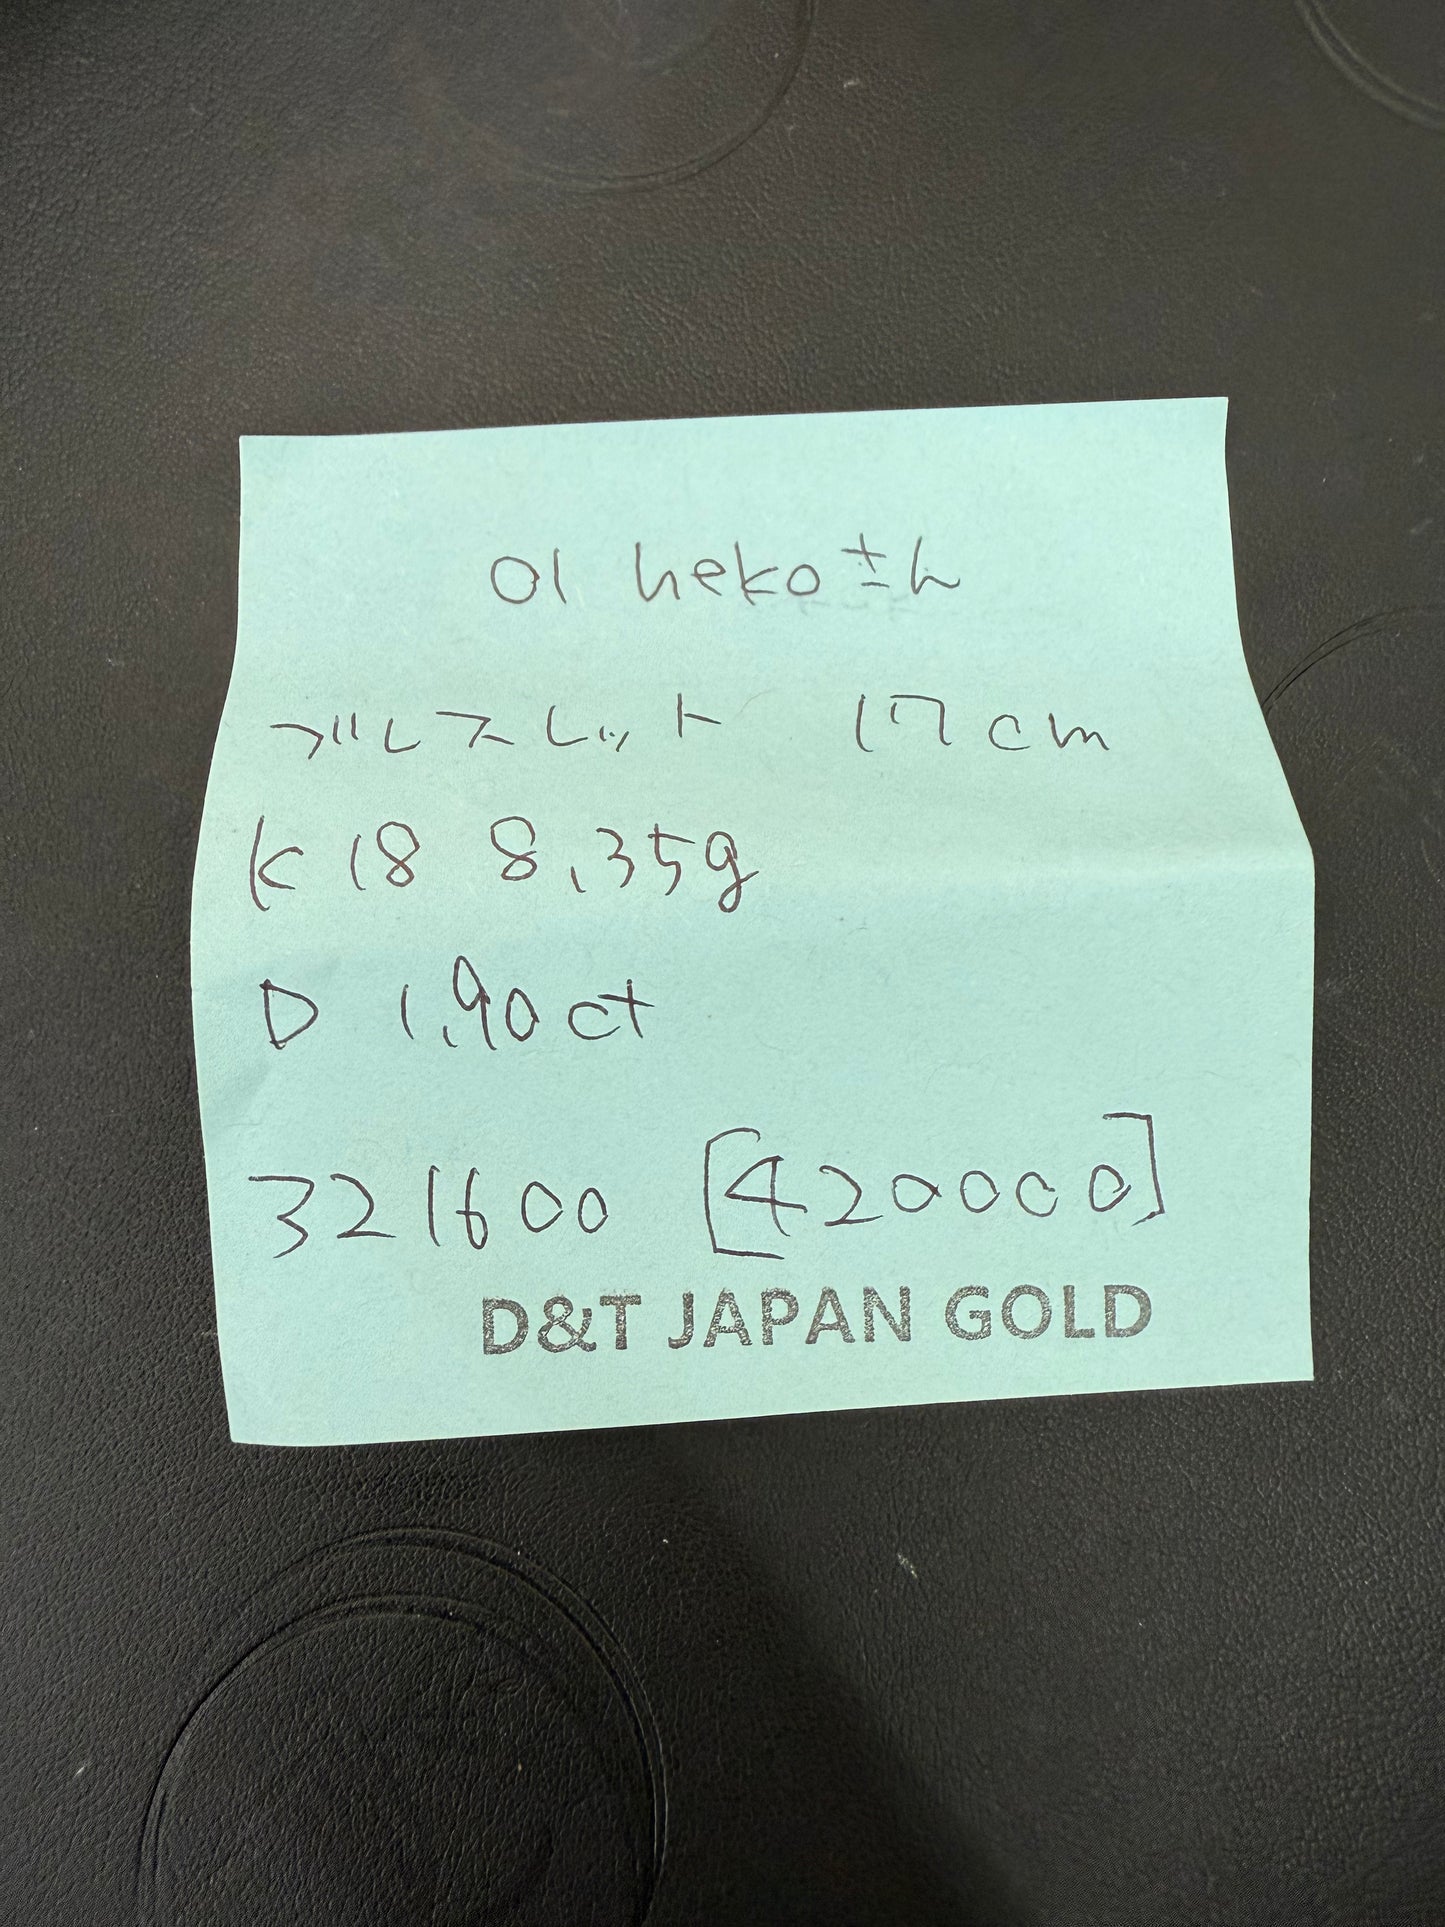 01 nekoさん
ブレスレット 17cm
K18 8.35g
D 1.90ct
321600 [420000]
D&T JAPAN GOLD